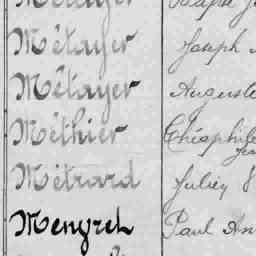 Métayer Joseph
Métayer Auguste
Méthier Théophile
Métrard Julien
Mengreh Paul